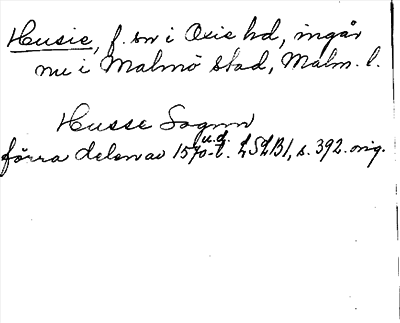 Husie, f. sn i Oxie hd, ingår
nu i Malmö stad, Malm. l.
Husse Sognn
u.d.
förra delen av 1570-t. LSLB1, s. 392. orig.